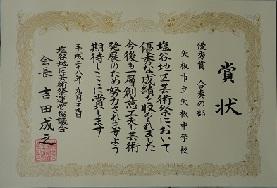 賞状
優秀賞 合奏の部
矢板市立矢板中学校
塩谷地区芸術祭において
優秀な成績を収められました
今後も一層創意工夫し芸術
発展のため努力されますよう
期待しここに賞します
平成二十八年九月二十日
塩谷地区芸術祭運営協議会
会長 吉田成之